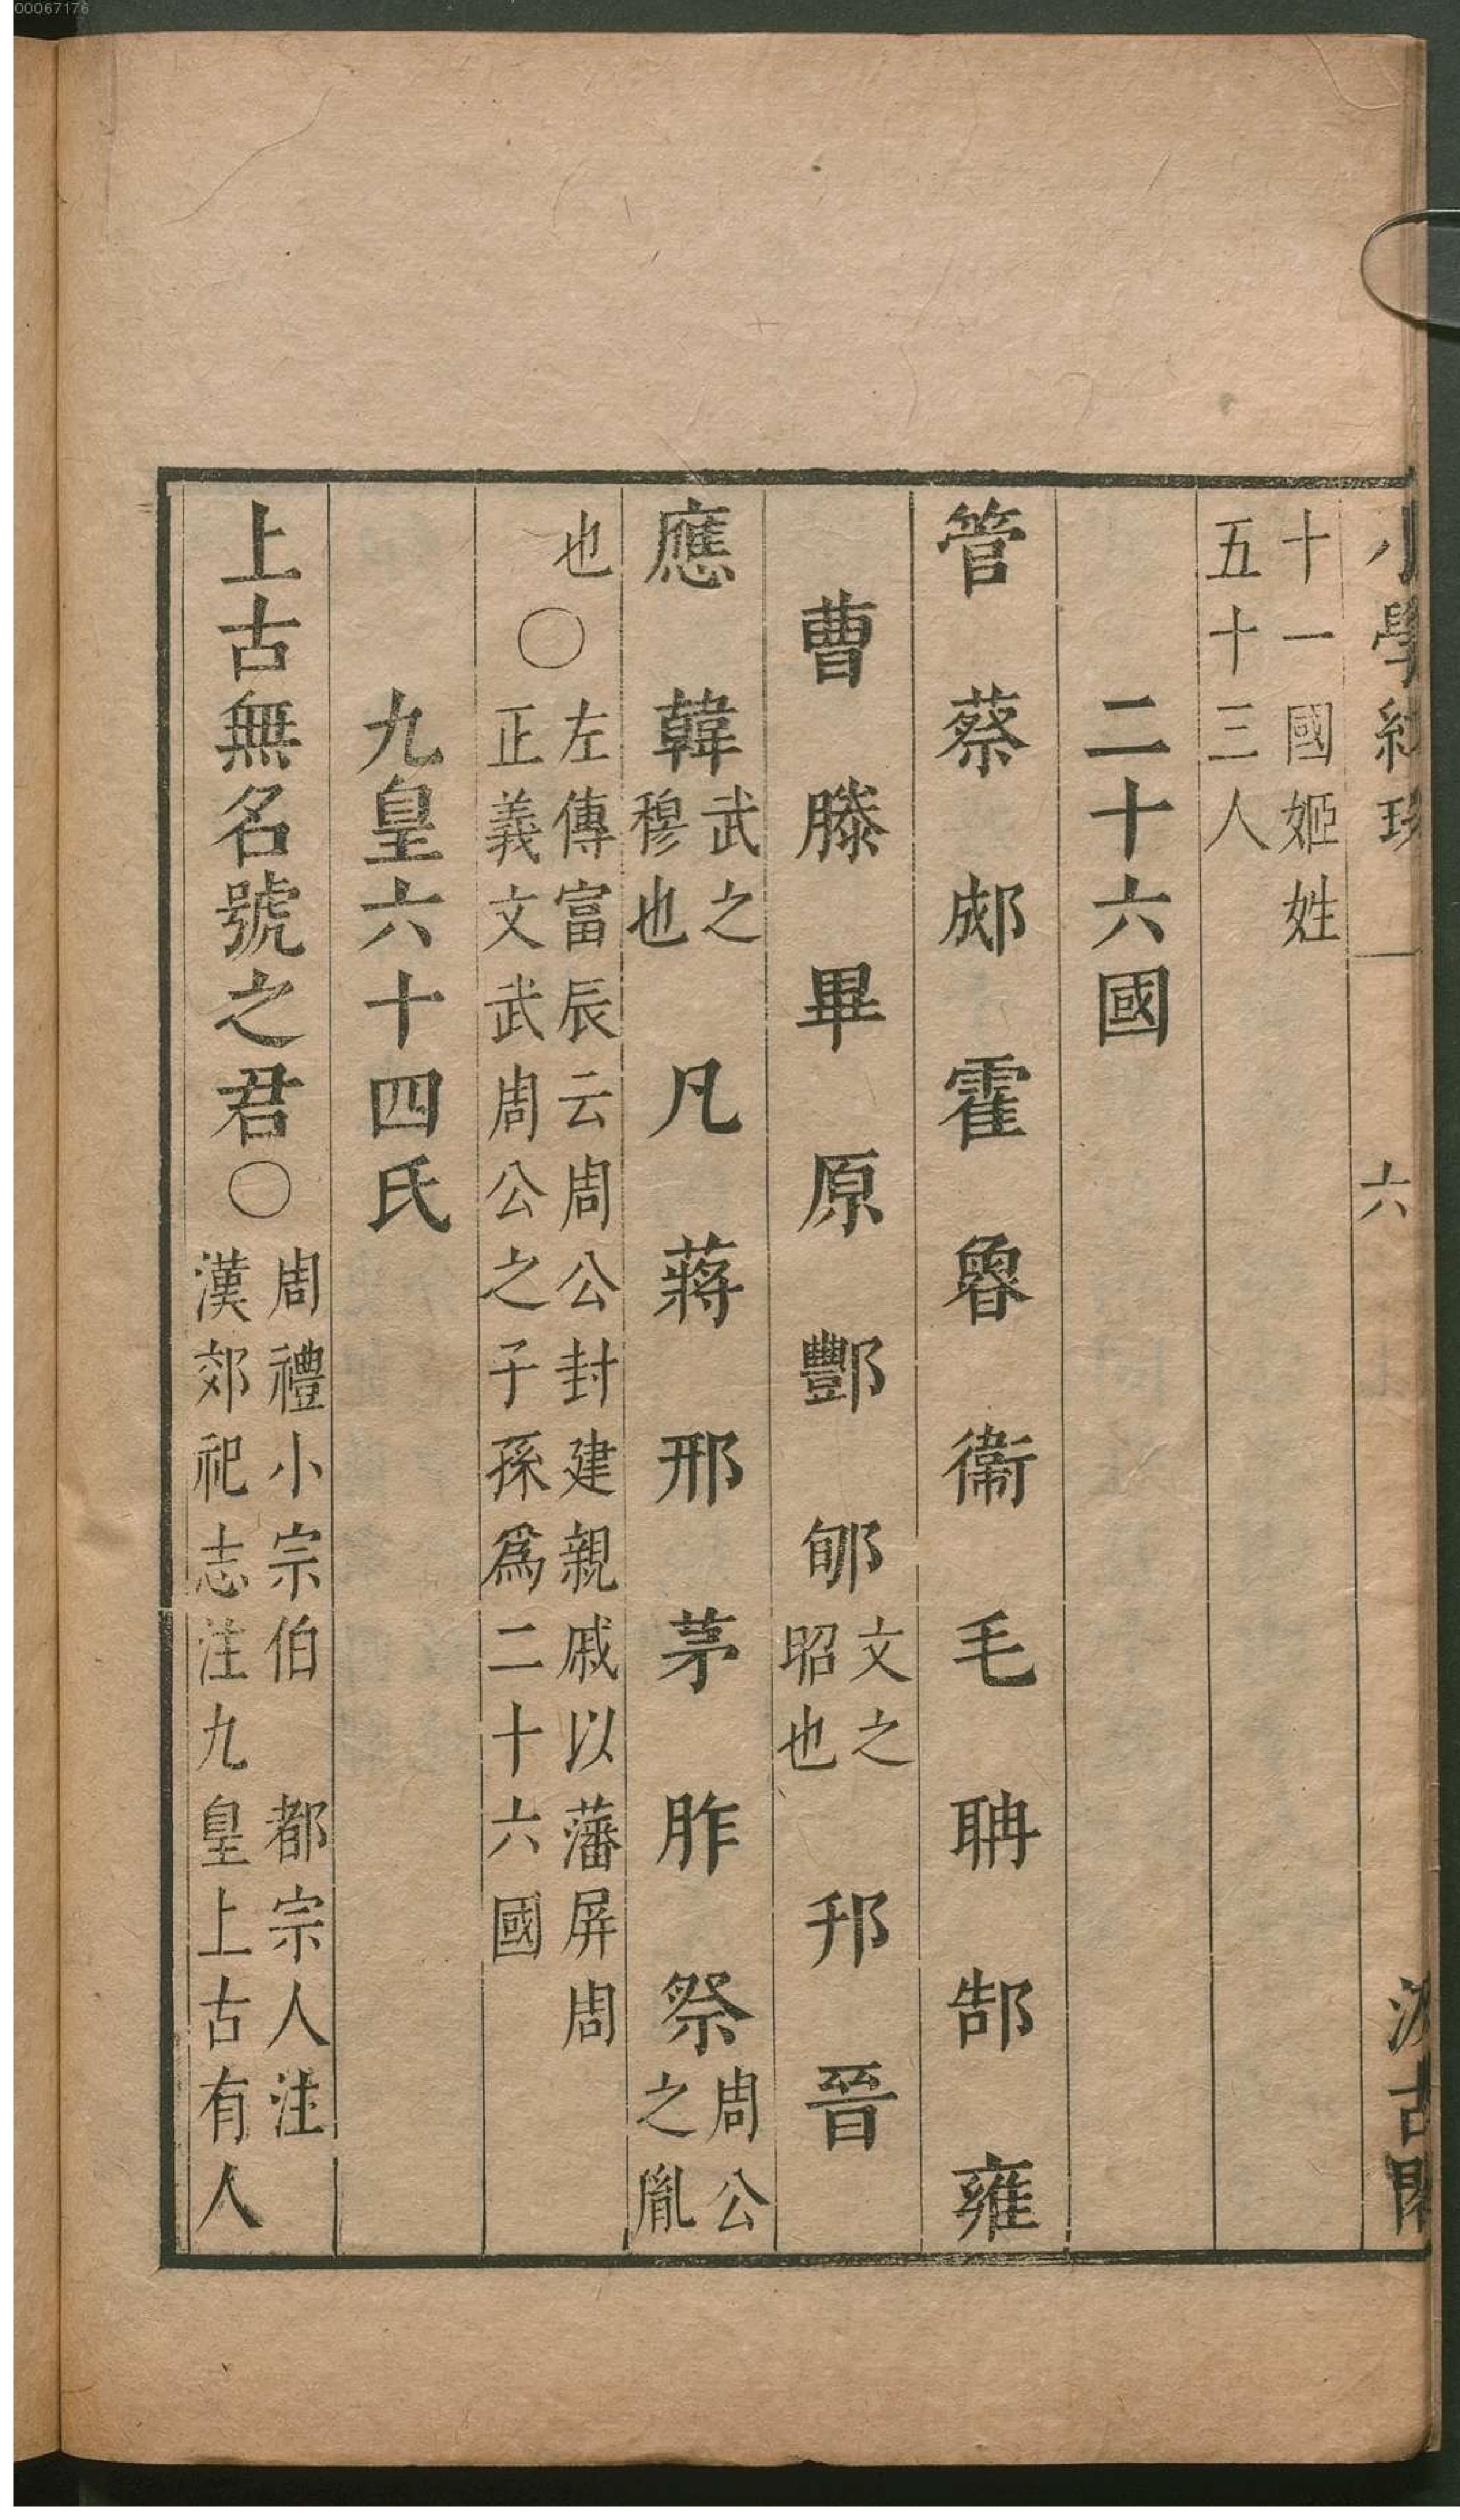 00067176
小學紺珠 六 汲古閣
十一國姬姓
五十三人
二十六國
管 蔡 郕 霍 魯 衞 毛 聃 郜 雍
曹 滕 畢 原 酆 郇 文之昭也 邘 晉
應 韓 武之穆也 凡 蔣 邢 茅 胙 祭 周公之胤
也○左傳富辰云周公封建親戚以藩屏周
正義文武周公之子孫爲二十六國
九皇六十四氏
上古無名號之君○周禮小宗伯 都宗人注
漢郊祀志注九皇上古有人